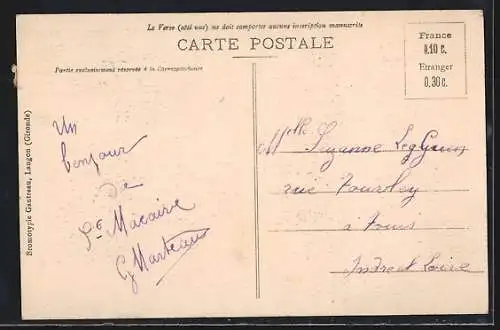 Le Verso (côté vue) ne doit comporter aucune inscription manuscrite
CARTE POSTALE
Partie exclusivement réservée à la Correspondance
France
0.10 c.
Etranger
0.30 c.
Bromotypie Gautreau, Langon (Gironde)
Un
bonjour
de
St Macaire
G Marteau
Mlle Suzanne
rue
à Tours
Indre et Loire